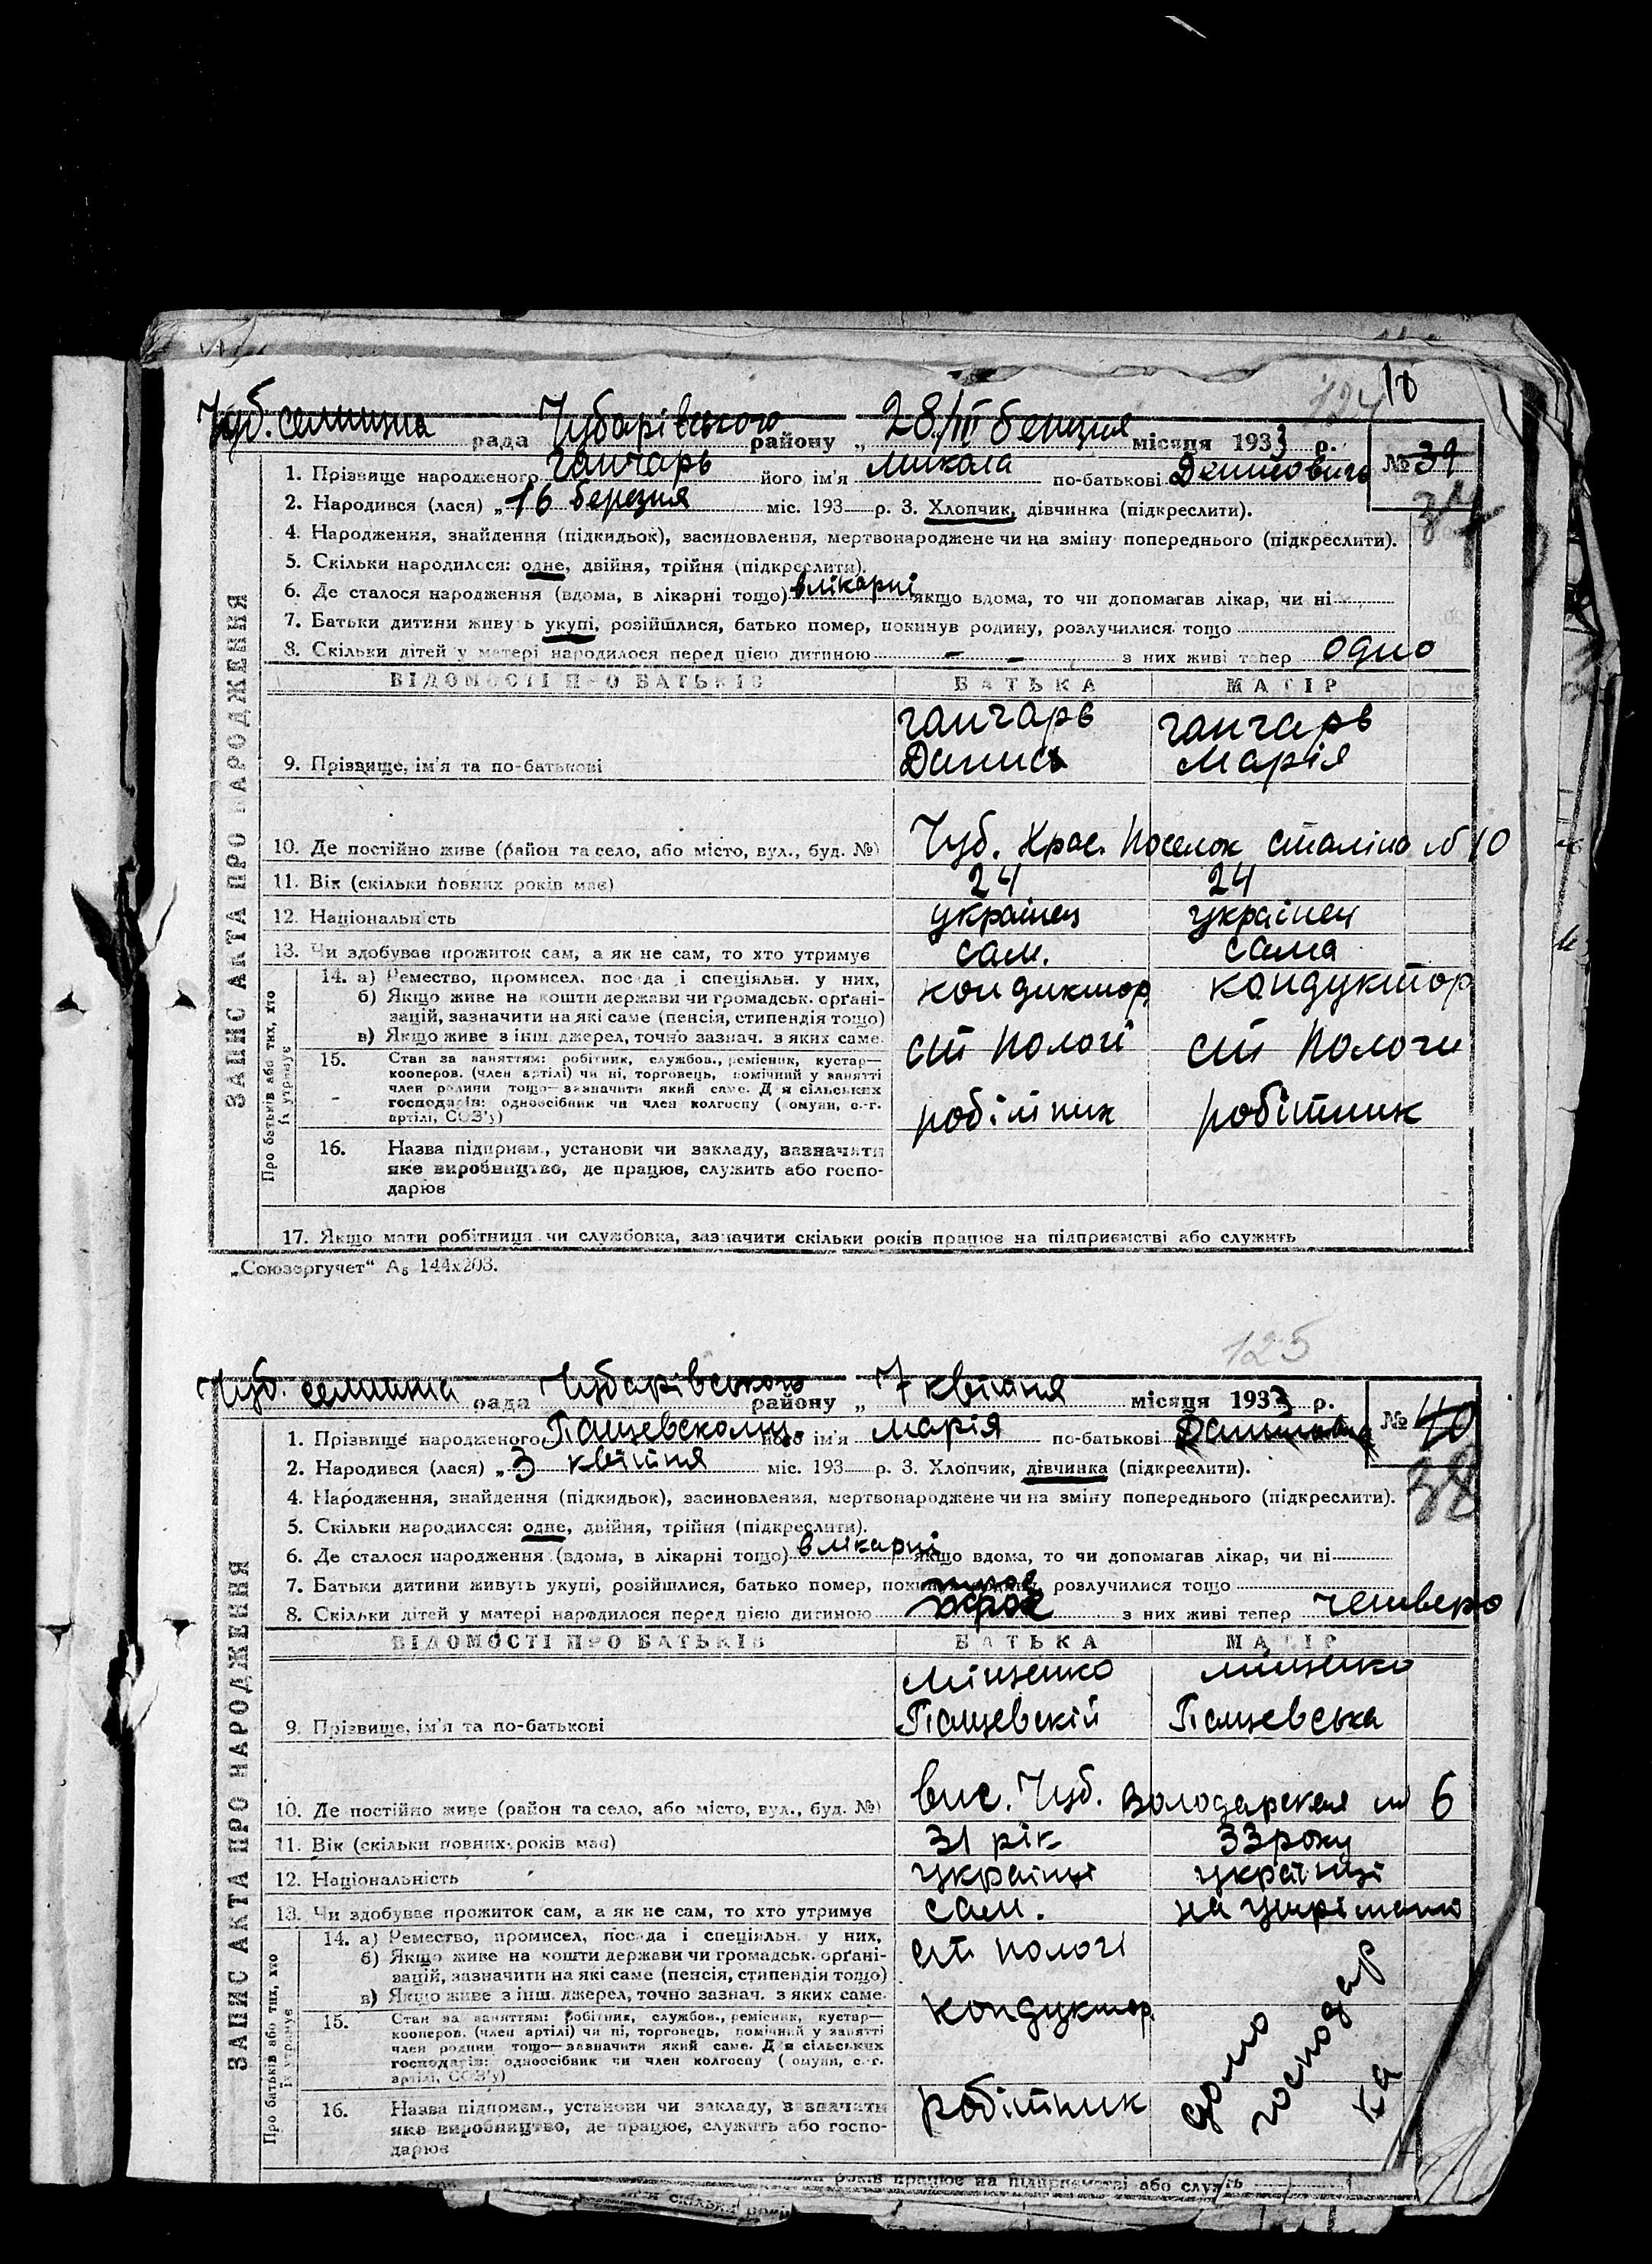 124 18
Чуб. селищна рада Чубарівського району „ 28/III березня місяця 1933 р.
№ 39
37
1. Прізвище народженого ганчарь його ім'я микола по-батькові Денисовичь
2. Народився (лася) „ 16 березня міс. 193 р. 3. Хлопчик, дівчинка (підкреслити).
4. Народження, знайдення (підкидьок), засиновлення, мертвонароджене чи на зміну попереднього (підкреслити).
5. Скільки народилося: одне, двійня, трійня (підкреслити).
6. Де сталося народження (вдома, в лікарні тощо) в лікарні якщо вдома, то чи допомагав лікар, чи ні
7. Батьки дитини живуть укупі, розійшлися, батько помер, покинув родину, розлучилися тощо
8. Скільки дітей у матері народилося перед цією дитиною - - з них живі тепер одно
ВІДОМОСТІ ПРО БАТЬКІВ БАТЬКА МАТІР
ганчарь ганчарь
9. Прізвище, ім'я та по-батькові Данис Марія
10. Де постійно живе (район та село, або місто, вул., буд. №) Чуб. Крас. Поселок сталіно № 10
11. Вік (скільки повних років має) 24 24
12. Національність українец українец
13. Чи здобуває прожиток сам, а як не сам, то хто утримує сам. сама
14. а) Ремество, промисел, посада і спеціяльн. у них,
б) Якщо живе на кошти держави чи громадськ. орґані-
зацій, зазначити на які саме (пенсія, стипендія тощо)
в) Якщо живе з інш. джерел, точно зазнач. з яких саме.
кондуктор кондуктор
ст Пологі ст Пологи
15. Стан за заняттям: робітник, службов., ремісник, кустар—
кооперов. (член артілі) чи ні, торговець, помічний у занятті
член родини тощо—зазначити який саме. Для сільських
господарів: одноосібник чи член колгоспу (комуни, с.-г.
артілі, СОЗ'у)
робітник робітник
16. Назва підприєм., установи чи закладу, зазначити
яке виробництво, де працює, служить або госпо-
дарює
17. Якщо мати робітниця чи службовка, зазначити скільки років працює на підприємстві або служить
ЗАПИС АКТА ПРО НАРОДЖЕННЯ
Про батьків або тих, хто
їх утримує
„Союзоргучет“ А5 144х203.
125
Чуб. селищна рада Чубарівського району „ 7 квітня місяця 1933 р.
№ 40
38
1. Прізвище народженого Пащевскому його ім'я Марія по-батькові
2. Народився (лася) „ 3 квітня міс. 193 р. 3. Хлопчик, дівчинка (підкреслити).
4. Народження, знайдення (підкидьок), засиновлення, мертвонароджене чи на зміну попереднього (підкреслити).
5. Скільки народилося: одне, двійня, трійня (підкреслити).
6. Де сталося народження (вдома, в лікарні тощо) в лікарні якщо вдома, то чи допомагав лікар, чи ні
7. Батьки дитини живуть укупі, розійшлися, батько помер, покинув родину, розлучилися тощо
8. Скільки дітей у матері народилося перед цією дитиною трое з них живі тепер четверо
ВІДОМОСТІ ПРО БАТЬКІВ БАТЬКА МАТІР
Міщенко Міщенко
9. Прізвище, ім'я та по-батькові Пащевскій Пащевська
10. Де постійно живе (район та село, або місто, вул., буд. №) вис. Чуб. Володарская № 6
11. Вік (скільки повних років має) 31 рік 33 року
12. Національність українці українці
13. Чи здобуває прожиток сам, а як не сам, то хто утримує сам. на утріманю
14. а) Ремество, промисел, посада і спеціяльн. у них,
б) Якщо живе на кошти держави чи громадськ. орґані-
зацій, зазначити на які саме (пенсія, стипендія тощо)
в) Якщо живе з інш. джерел, точно зазнач. з яких саме.
ст пологі
кондуктор
15. Стан за заняттям: робітник, службов., ремісник, кустар—
кооперов. (член артілі) чи ні, торговець, помічний у занятті
член родини тощо—зазначити який саме. Для сільських
господарів: одноосібник чи член колгоспу (комуни, с.-г.
артілі, СОЗ'у)
домо
господар
ка
16. Назва підприєм., установи чи закладу, зазначити
яке виробництво, де працює, служить або госпо-
дарює
робітник
ЗАПИС АКТА ПРО НАРОДЖЕННЯ
Про батьків або тих, хто
їх утримує
років працює на підприємстві або служить